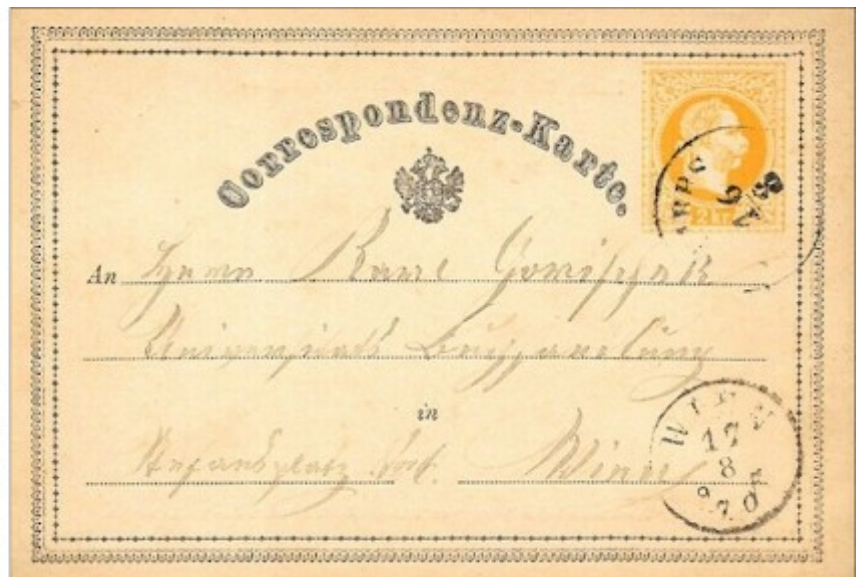 Correspondenz-Karte.
2 Kr.
An Herrn Karl Gorischek
Universitäts Buchhandlung
in
Stefansplatz Wien
WIEN
17
8
70